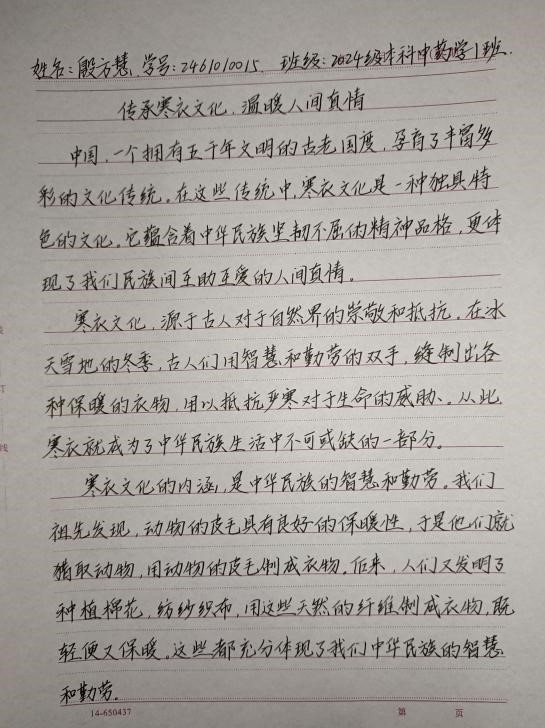 姓名：殷方慧 学号：2461010015 班级：2024级本科中药学1班.
传承寒衣文化，温暖人间真情
中国，一个拥有五千年文明的古老国度，孕育了丰富多
彩的文化传统。在这些传统中，寒衣文化是一种独具特
色的文化。它蕴含着中华民族坚韧不屈的精神品格，更体
现了我们民族间互助互爱的人间真情。
寒衣文化，源于古人对于自然界的崇敬和抵抗。在冰
天雪地的冬季，古人们用智慧和勤劳的双手，缝制出各
种保暖的衣物，用以抵抗严寒对于生命的威胁、。从此
寒衣就成为了中华民族生活中不可或缺的一部分。
寒衣文化的内涵，是中华民族的智慧和勤劳。我们
祖先发现，动物的皮毛具有良好的保暖性，于是他们就
猎取动物，用动物的皮毛制成衣物。后来，人们又发明了
种植棉花，纺纱织布，用这些天然的纤维制成衣物，既
轻便又保暖。这些都充分体现了我们中华民族的智慧
和勤劳。
14-650437 第 页
订
线